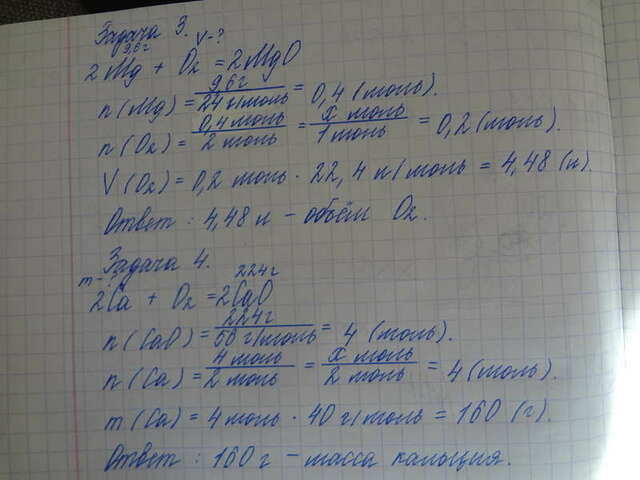 Задача 3.
9,6г V-?
2Mg + O₂ = 2MgO
n(Mg) = 9,6г / 24 г/моль = 0,4 (моль).
n(O₂) = 0,4 моль / 2 моль = x моль / 1 моль = 0,2 (моль).
V(O₂) = 0,2 моль · 22,4 л/моль = 4,48 (л).
Ответ: 4,48 л - объём O₂.
Задача 4.
m-? 224г
2Ca + O₂ = 2CaO
n(CaO) = 224г / 56 г/моль = 4 (моль).
n(Ca) = 4 моль / 2 моль = x моль / 2 моль = 4 (моль).
m(Ca) = 4 моль · 40 г/моль = 160 (г).
Ответ: 160 г - масса кальция.